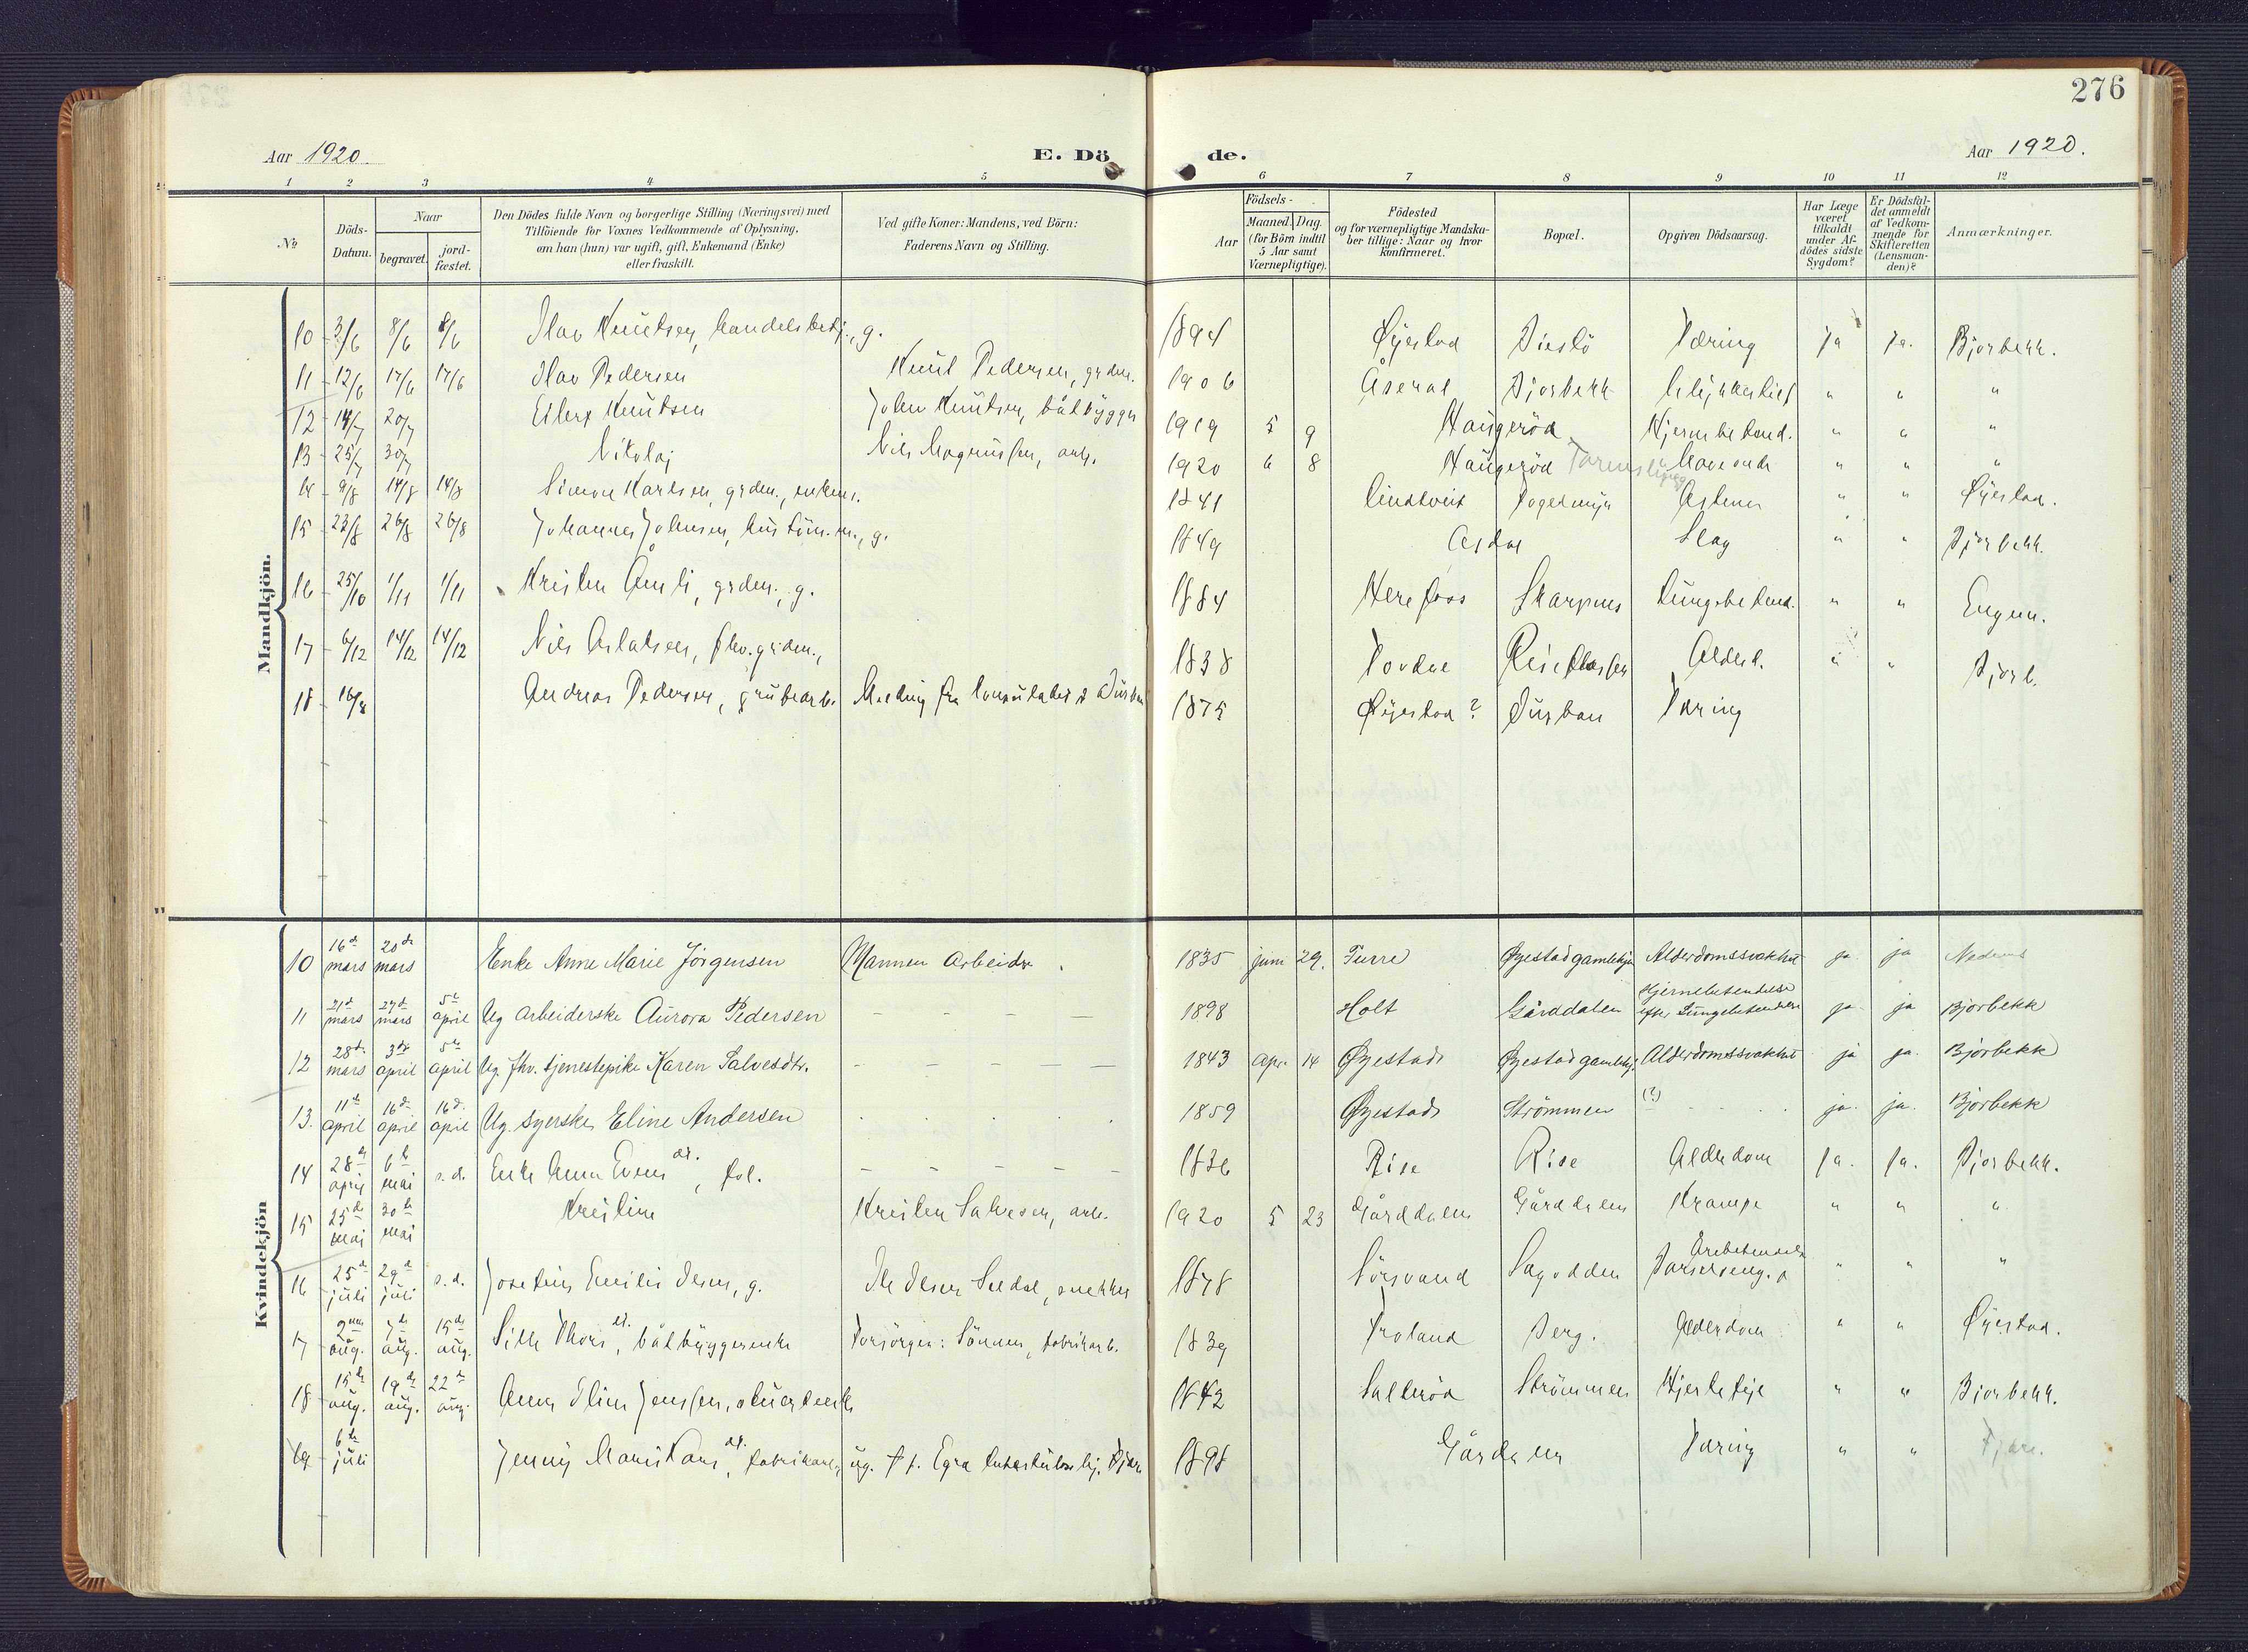 276
Aar 1920.
E. Dö
de.
Aar 1920.
1 2 3 4 5 6 7 8 9 10 11 12
No
Döds-Datum.
Naar
begravet.
jord-fæstet.
Den Dödes fulde Navn og borgerlige Stilling (Næringsvei) med
Tilföiende for Voxnes Vedkommende af Oplysning,
om han (hun) var ugift, gift, Enkemand (Enke)
eller fraskilt.
Ved gifte Koner: Mandens, ved Börn:
Faderens Navn og Stilling.
Födsels-
Aar
Maaned. Dag.
(for Börn indtil
5 Aar samt
Værnepligtige).
Födested
og for værnepligtige Mandska-
ber tillige: Naar og hvor
konfirmeret.
Bopæl.
Opgiven Dödsaarsag.
Har Læge
været
tilkaldt
under Af-
dödes sidste
Sygdom?
Er Dödsfal-
det anmeldt
af Vedkom-
mende for
Skifteretten
(Lensman-
den)?
Anmærkninger.
Mandkjön.
10 3/6 8/6 8/6 Olav Knutsen, handelsbetj., g. 1894 Øyestad Tæring ja ja. Bjorbekk.
11 12/6 17/6 17/6 Olav Pedersen Knut Pedersen, grdm. 1906 Åseral Bjorbekk " " "
12 14/7 20/7 Knutsen John Knutsen, båtbygger 1919 5 9 Haugeröd Hjernebetend. " " "
13 25/7 30/7 Nikolai Nils Magnussen, arb. 1920 6 8 Haugeröd " " "
14 9/8 14/8 14/8 Simon Karlsen, grdm., enkem. 1841 " " Øyestad.
15 23/8 26/8 26/8 Johannes Johnsen, g. 1849 Asdal Slag " " Bjorbekk.
16 25/10 1/11 1/11 Kristen Åmli, grdm., g. 1884 Herefoss Skarpnes Lungebetend. " "
17 6/12 14/12 14/12 Nils Aslaksen, fhv. grdm., 1838 " " Bjorb.
18 16/8 Andreas Pedersen, grubearb. Melding fra konsulatet i Durban 1875 Øyestad? Durban Tæring
Kvindekjön
10 16de mars 20de mars Enke Anne Marie Jörgensen Mannen Arbeider. 1835 juni 29. Øyestad gamlehjem Alderdomssvakhet ja ja Nedenes
11 21de mars 27de mars 5te april Ug arbeiderske Aurora Pedersen — — — — 1898 Holt Gårddalen Hjernebetendelse
efter Lungebetendelse ja ja Bjorbekk
12 28de mars 3de april 5te april Ug. fhv. tjenestepike Karen Salvesdtr. — — — — 1843 Apr. 14 Øyestad Øyestad gamlehj. Alderdomssvakhet ja ja. Bjorbekk
13. 11te april 16de april 16de april Ug. syerske Eline Andersen 1859 Øyestad Strömmen (?) ja. ja. Bjorbekk
14 28de april 6te mai s.d. Enke Anna Evensdt. — — — — — 1836 Rise Rise Alderdom ja. ja. Bjorbekk.
15 25de mai 30te mai Kristine Kristen Salvesen, arb. 1920 5 23 Gårddalen Gårddalen Krampe " " "
16 25de juli 29de juli s.d. Josefine Emilie Olsen, g. snekker 1878 Sagodden Årebetendelse " " "
17 2nen aug. 7de aug. 15de aug. båtbyggerenke Forsörges: Sönnen, fabrikarb. 1839 Froland Berg. Alderdom " " Øyestad.
18 15de aug. 19de aug. 22de aug. Anna Oline Jenssen, 1842 Salteröd Strömmen Hjertefeil " " Bjorbekk.
19 6te juli Jenny Marie fabrikarb., ug. 1898 Gårddalen Tæring " "